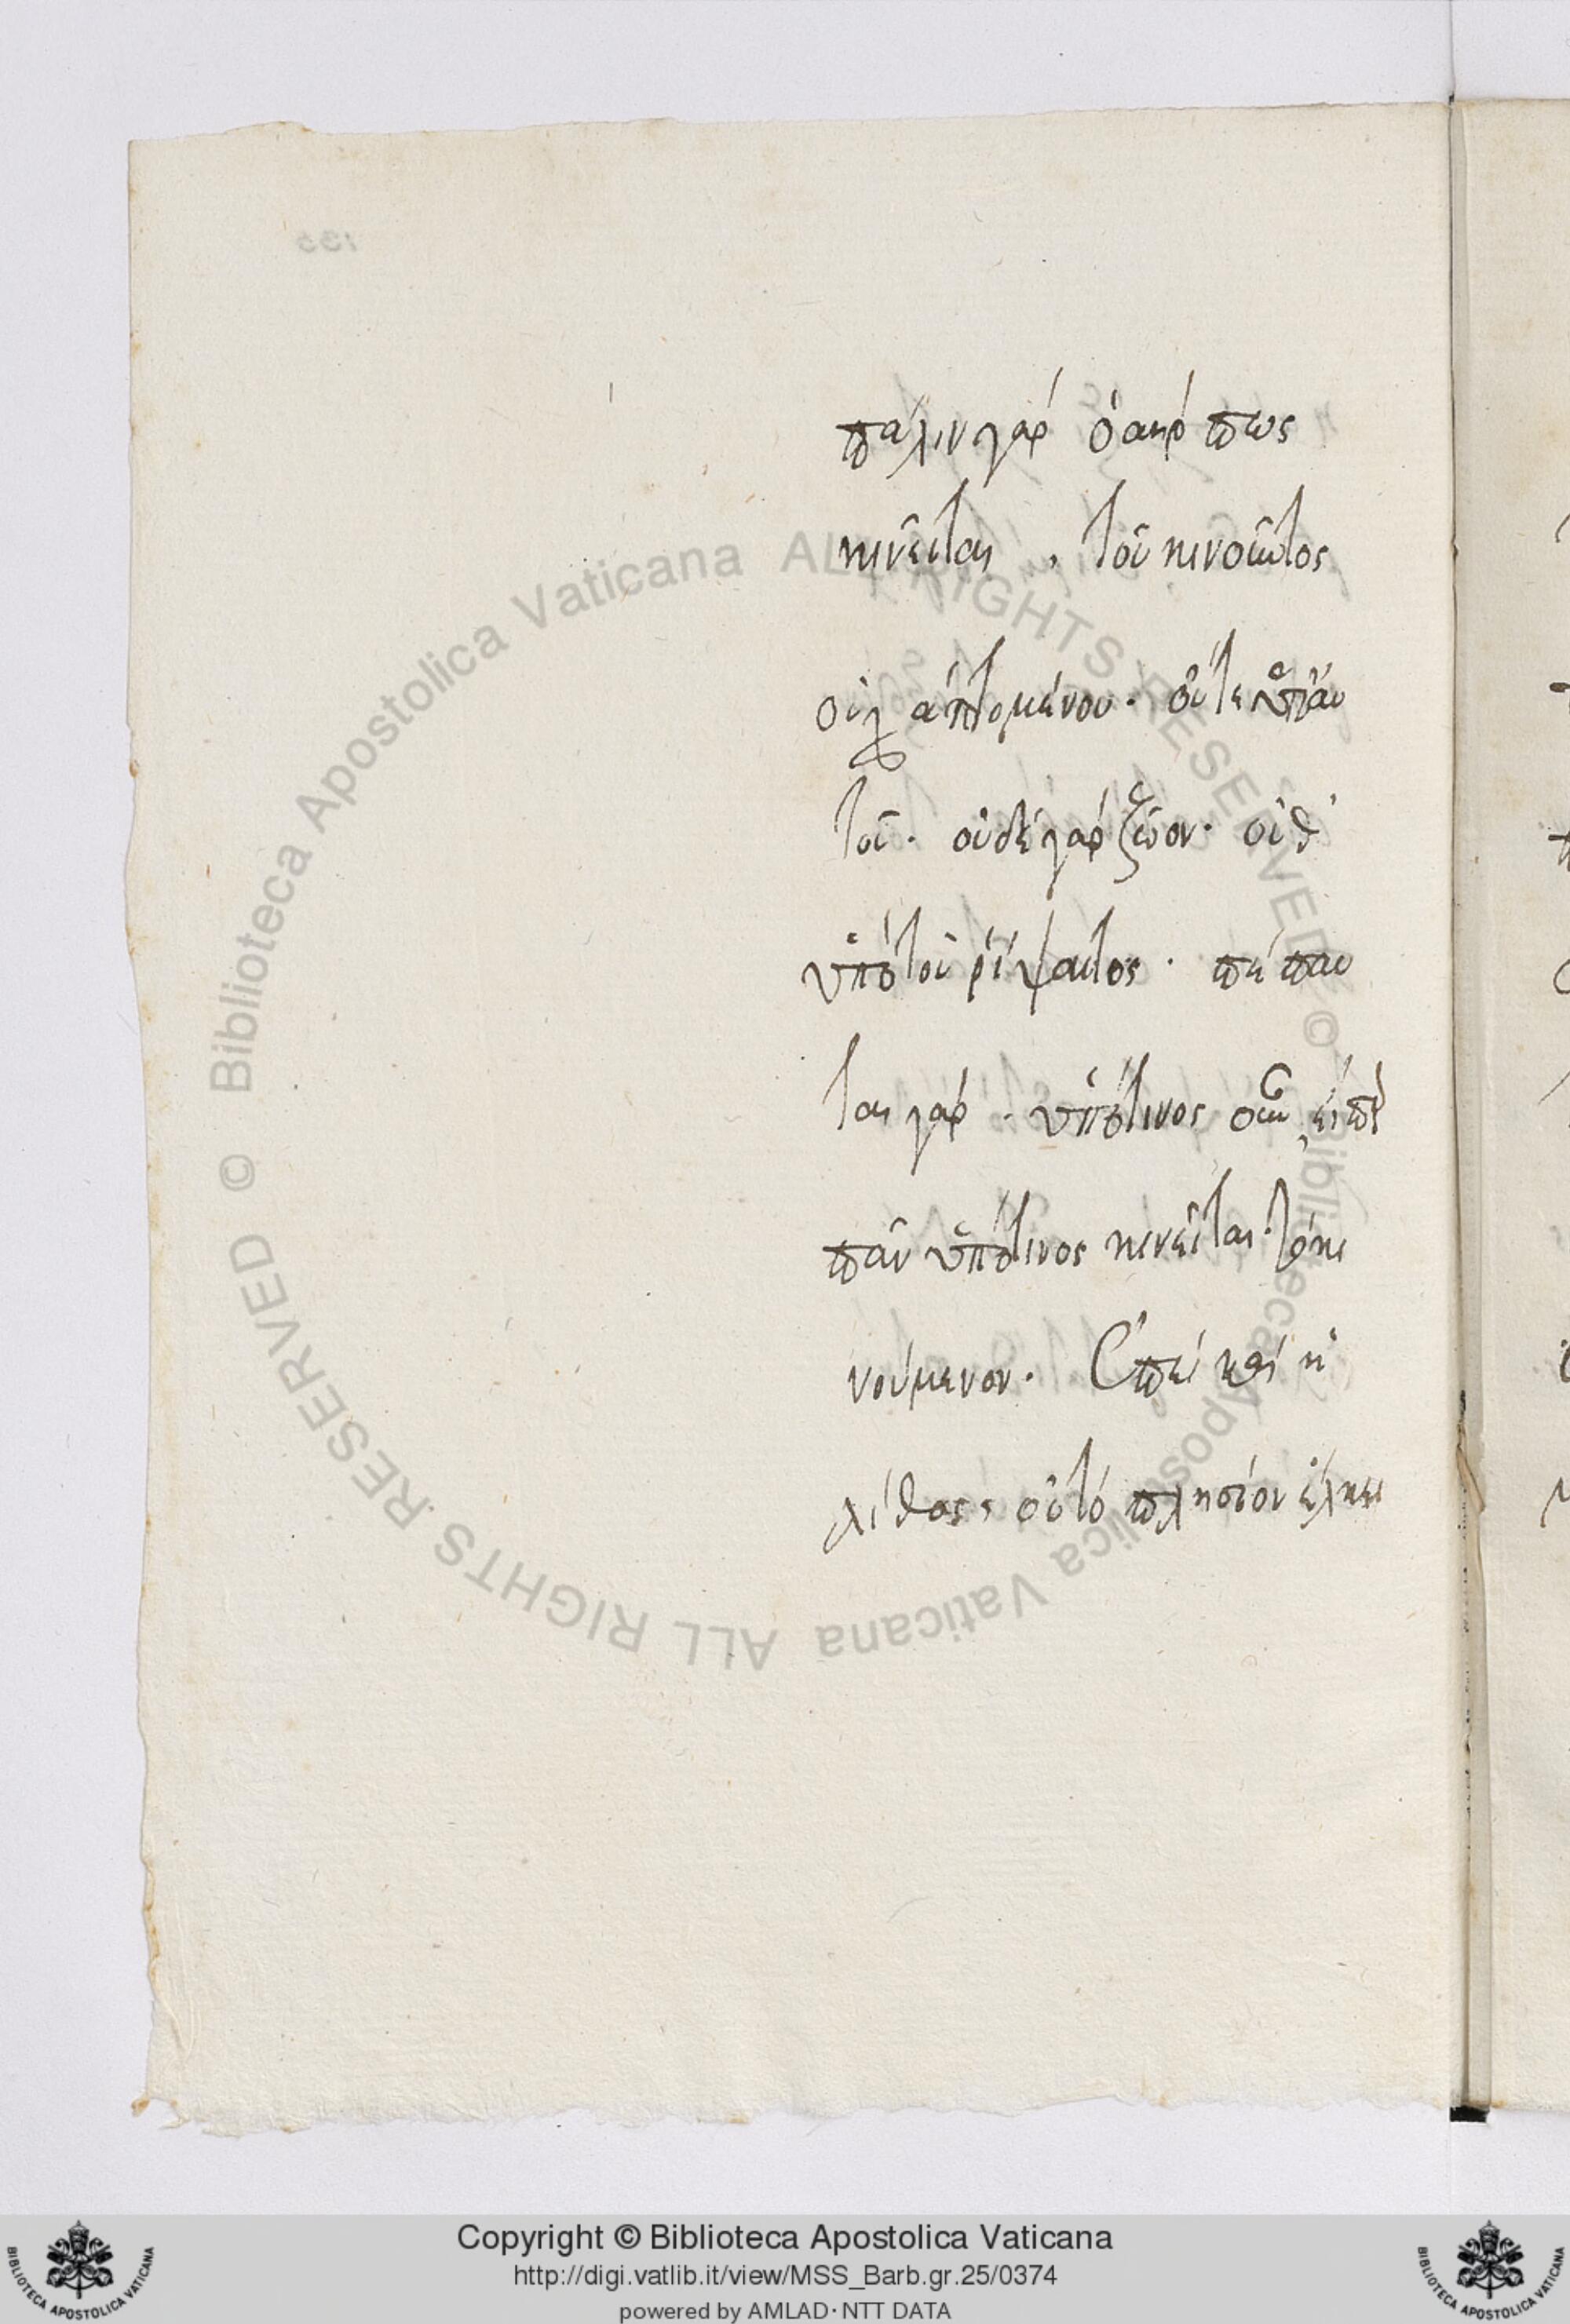 πάλιν γὰρ ὁ ἀὴρ πῶς
κινεῖται, τοῦ κινοῦντος
οὐχ ἁπτομένου. οὔτε ὑπ' αὐ
τοῦ. οὐδὲ γὰρ ζῶον. οὐθ'
ὑπὸ τοῦ ῥίψαντος. πέπαυ
ται γάρ. ὑπό τινος οὖν, εἴπερ
πᾶν ὑπό τινος κινεῖται τὸ κι
νούμενον. Ἐπεὶ καὶ ἡ
λίθος, οὐ τὸ πλησίον ἕλκει
Copyright © Biblioteca Apostolica Vaticana
http://digi.vatlib.it/view/MSS_Barb.gr.25/0374
powered by AMLAD·NTT DATA
BIBLIOTECA APOSTOLICA VATICANA
BIBLIOTECA APOSTOLICA VATICANA
© Biblioteca Apostolica Vaticana ALL RIGHTS RESERVED
© Biblioteca Apostolica Vaticana ALL RIGHTS RESERVED